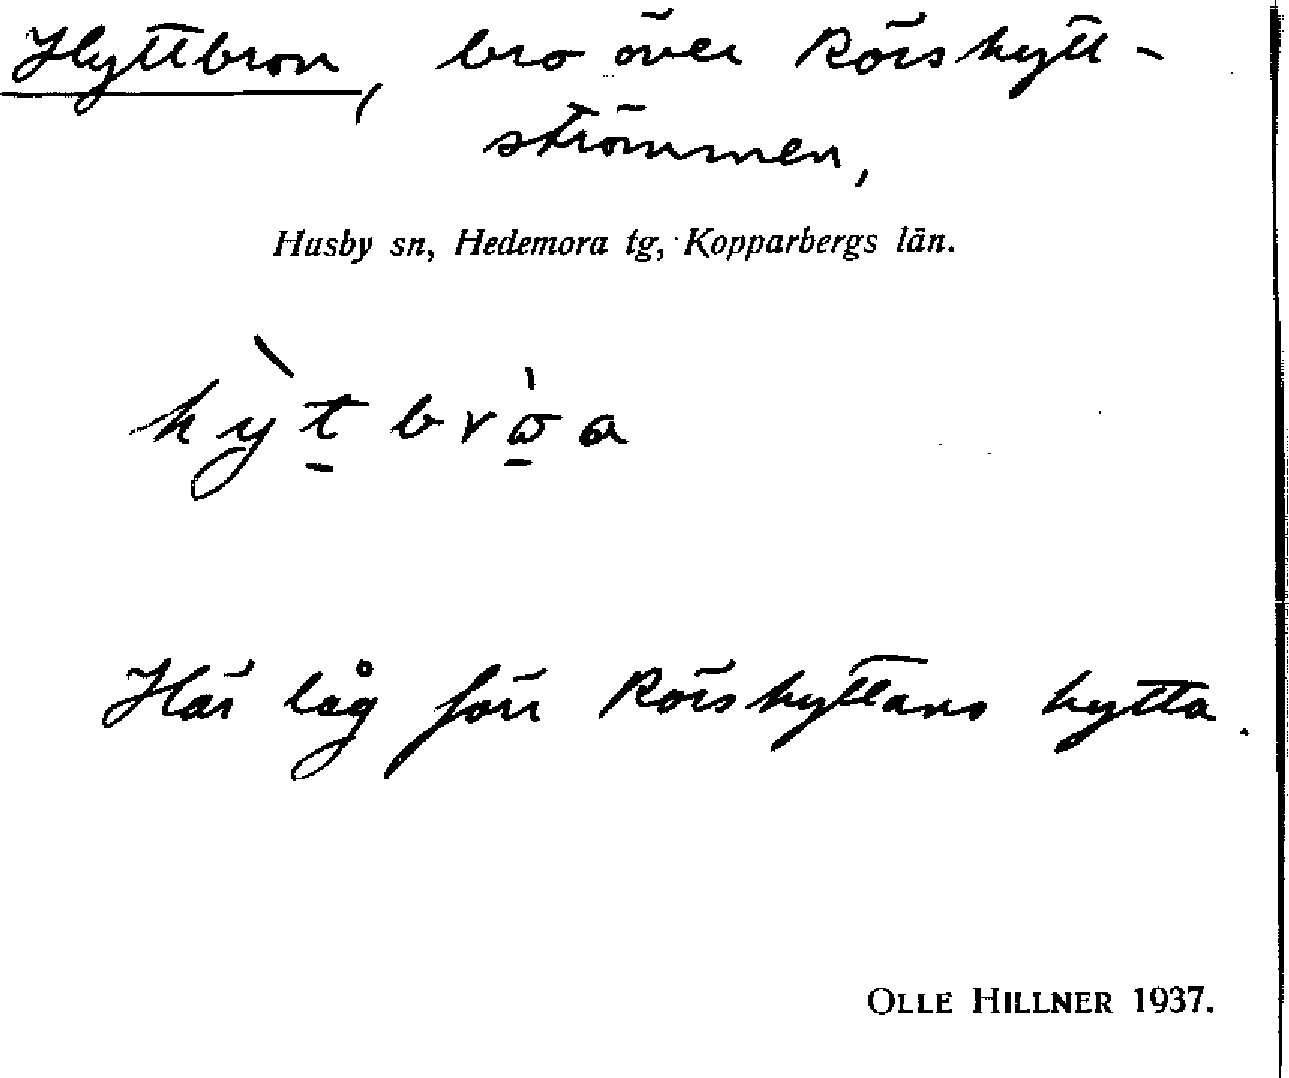 Hyttbron, bro över Rörshytt-
strömmen,
Husby sn, Hedemora tg, Kopparbergs län.
hỳ̖t̠brὼ̠a
Här låg förr Rörshyttans hytta.
OLLE HILLNER 1937.